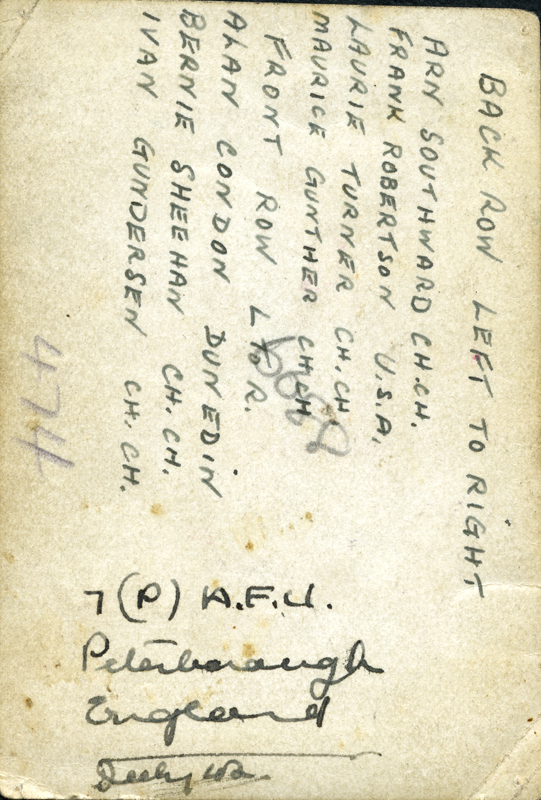 BACK ROW LEFT TO RIGHT
ARN SOUTHWARD CH.CH.
FRANK ROBERTSON U.S.A.
LAURIE TURNER CH.CH.
MAURICE GUNTHER CH.CH.
FRONT ROW L TO R.
ALAN CONDON DUNEDIN
BERNIE SHEEHAN CH.CH.
IVAN GUNDERSEN CH.CH.
474
7 (P) A.F.U.
Peterborough
England